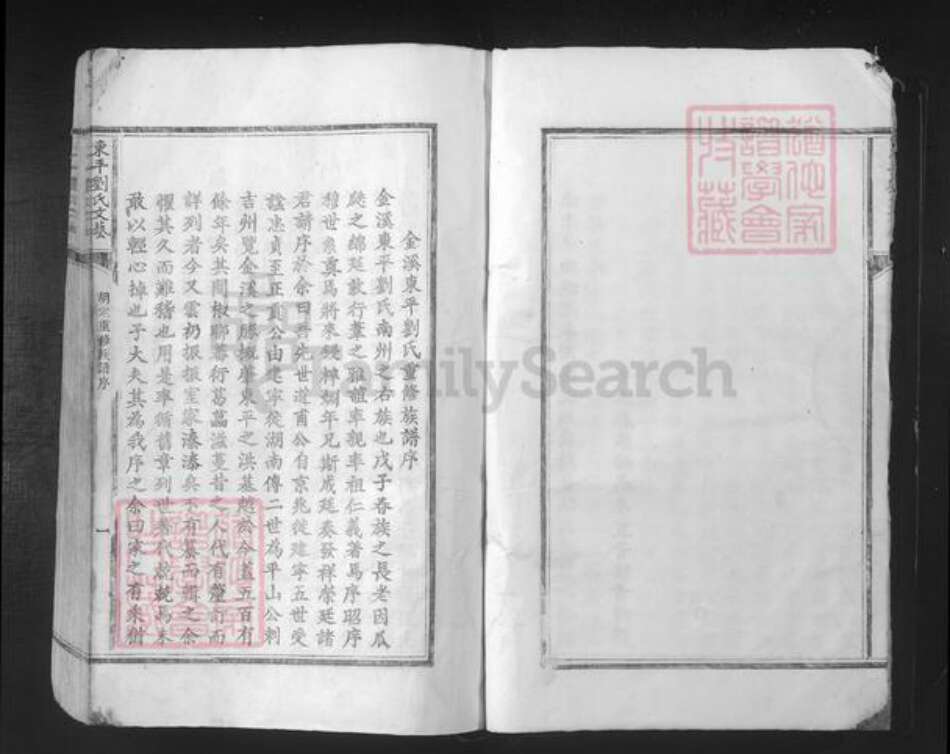 金溪東平劉氏重修族譜序
金溪東平劉氏南州之右族也戊子春族之長老因瓜
瓞之綿延敦行葦之雅誼率親率祖仁義著焉序昭序
穆世系奠焉將來 年兄斯咸廷奏發祥榮廷諸
君請序於余曰吾先世道甫公自京兆徙建寧五世受
諡忠貞至正貢公由建寧徙湖南傳二世為平山公刺
吉州覽金溪之勝 東平之洪基越於今蓋五百有
餘年矣其間椒聊蕃衍葛藟滋蔓昔之人代有釐訂而
詳列者今又雲礽振振室家溱溱矣不有纂而輯之余
懼其久而難稽也用是率循舊章列世 代 焉未
敢以輕心掉也子大夫其為我序之余曰家之有乘猶
東平劉氏文藝
重修族譜序
一
譜學會
藏
FamilySearch